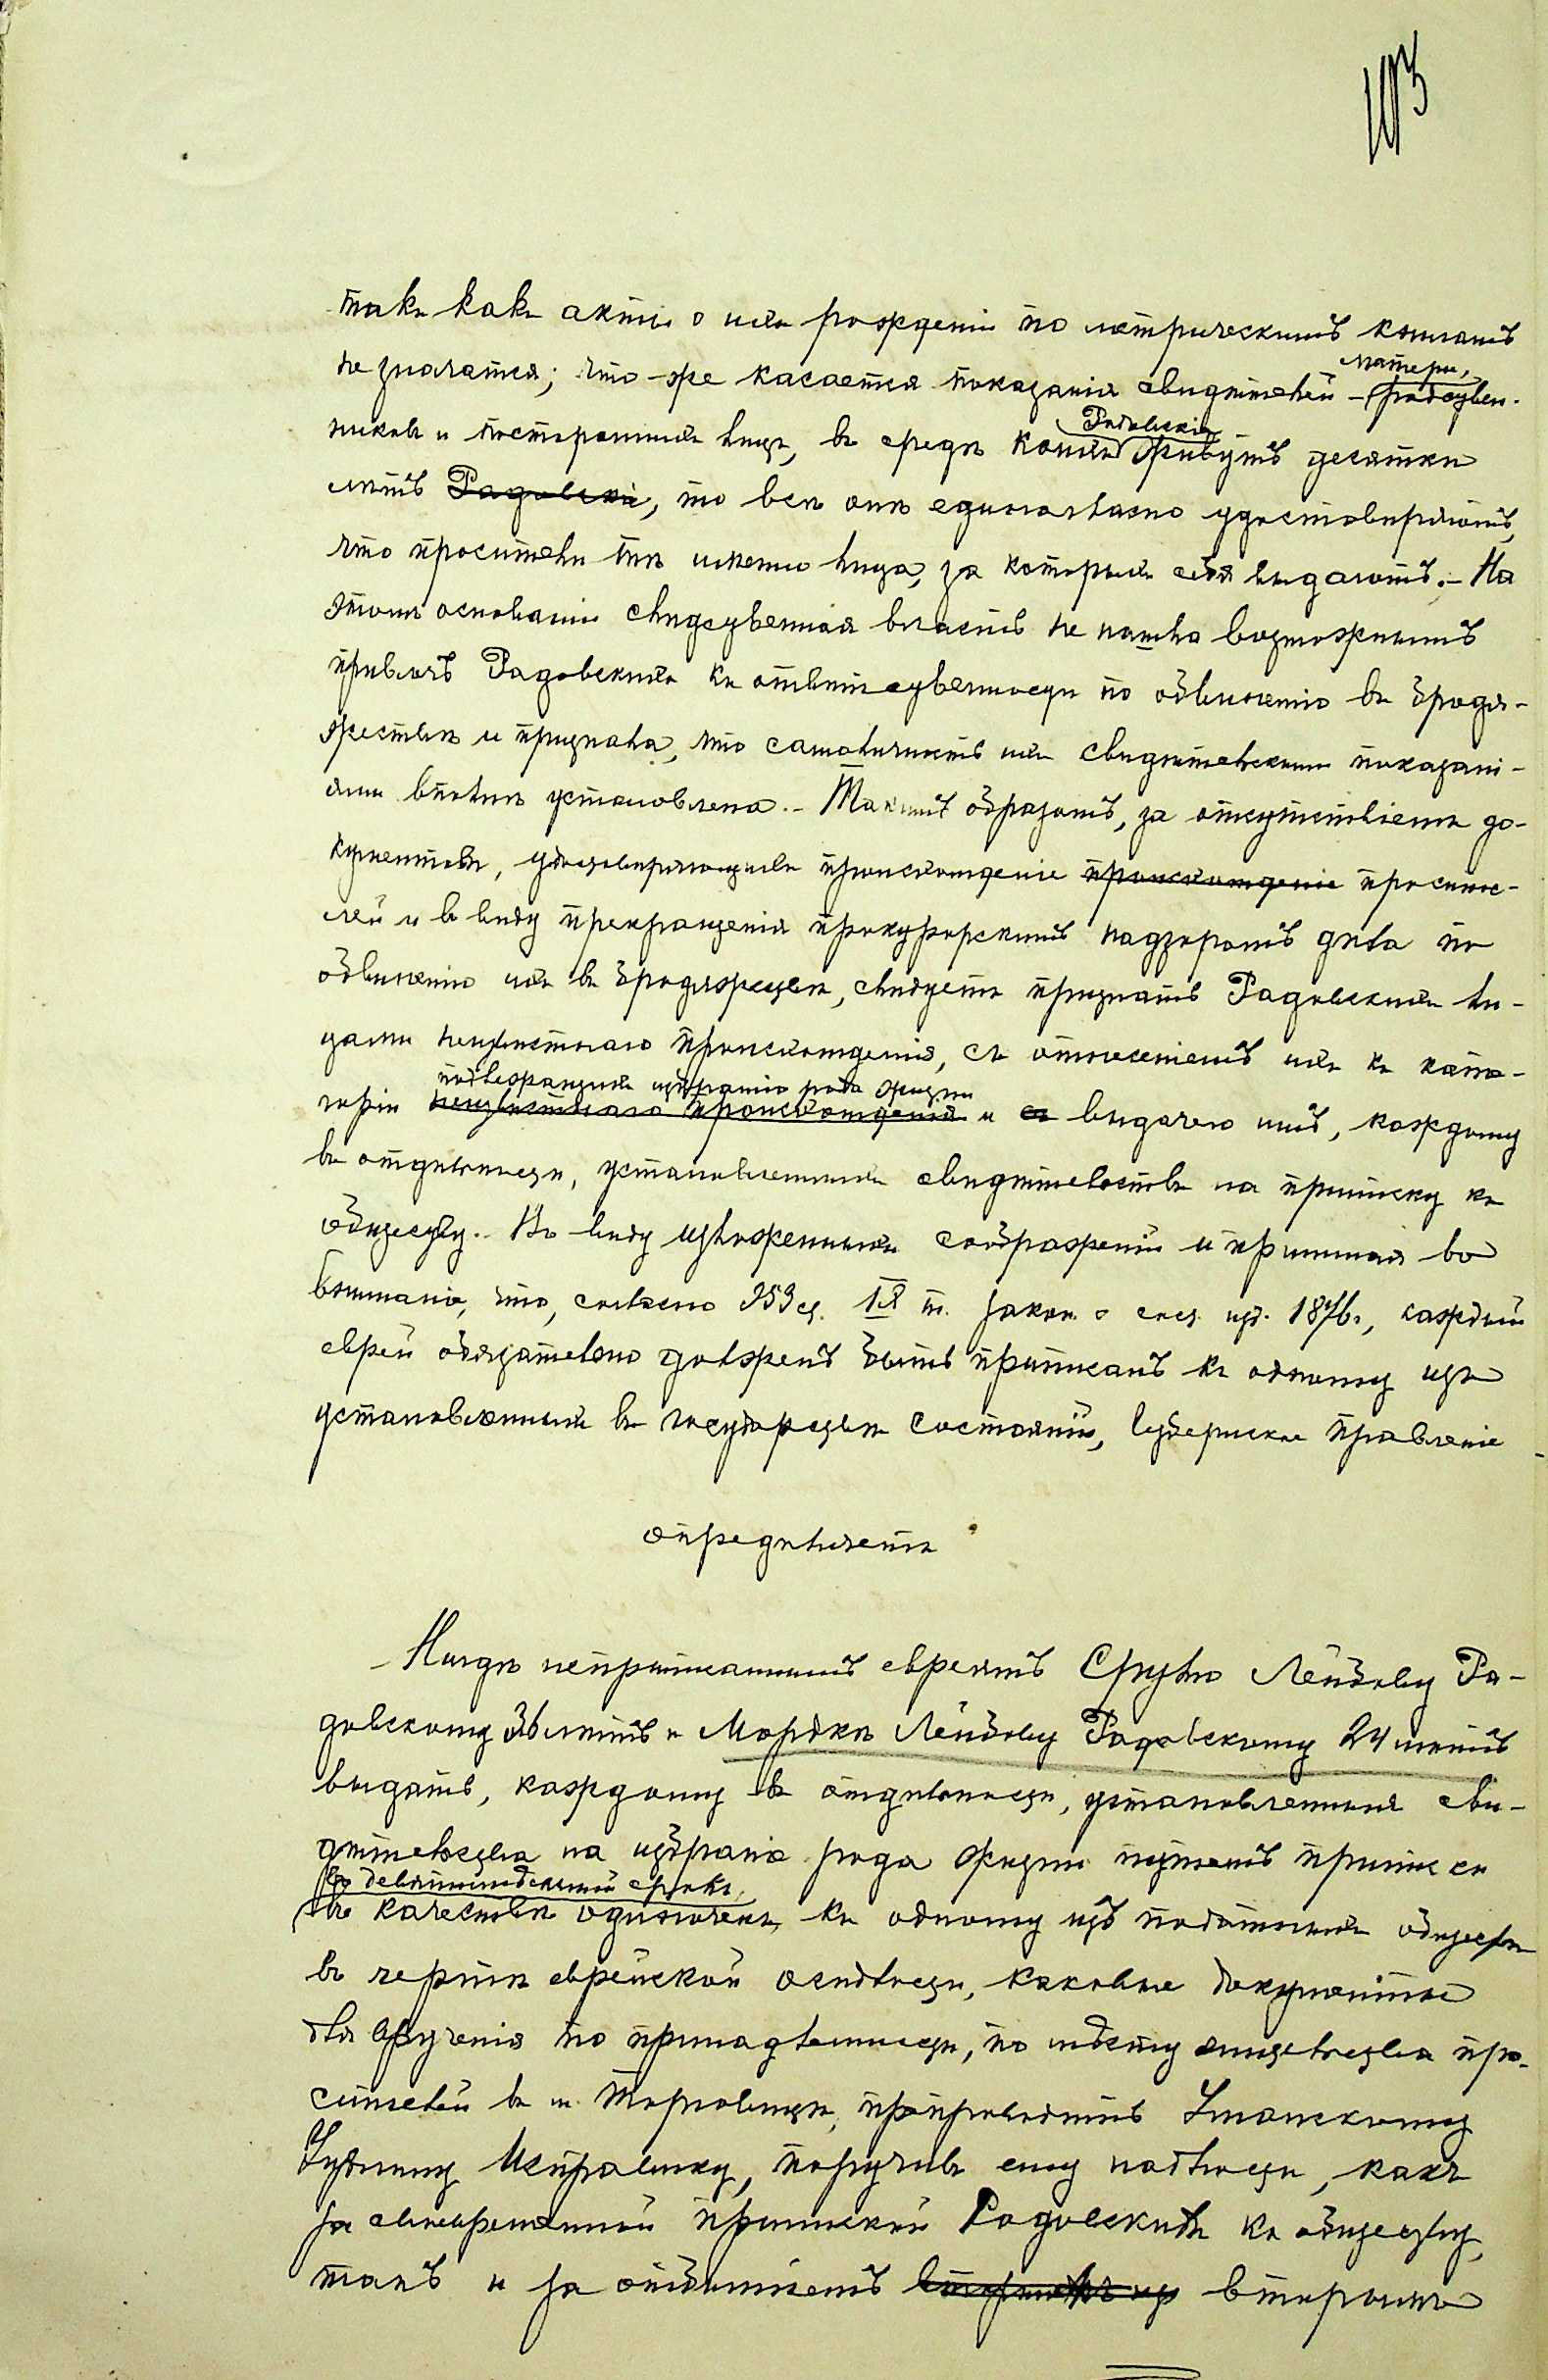 103
такъ какъ акты о ихъ рожденіи по метрическимъ книгамъ
не значатся; что-же касается показанія свидѣтелей – матери, родствен-
никовъ и постороннихъ лицъ, въ средѣ коихъ Радовскіе живутъ десятки
лѣтъ Радовскіе, то всѣ они единогласно удостовѣряютъ,
что просители тѣ именно лица, за которыхъ себя выдаютъ. – На
этомъ основаніи слѣдственная власть не нашла возможнымъ
привлечь Радовскихъ къ отвѣтственности по обвиненію въ бродя-
жествѣ и признала, что самоличность ихъ свидѣтельскими показані-
ями вполнѣ установлена. – Такимъ образомъ, за отсутствіемъ до-
кументовъ, удостовѣряющихъ происхожденіе происхожденіе просите-
лей и въ виду прекращенія прокурорскимъ надзоромъ дѣла по
обвиненію ихъ въ бродяжествѣ, слѣдуетъ признать Радовскихъ ли-
цами неизвѣстнаго происхожденія, съ отнесеніемъ ихъ къ кате-
подлежащихъ избранію рода жизни
горіи неизвѣстнаго происхожденія и съ выдачею имъ, каждому
въ отдѣльности, установленныхъ свидѣтельствъ на приписку къ
обществу. – Въ виду изложенныхъ соображеній и принимая во
вниманіе, что, согласно 953 ст. IX т. Закон. о сост. изд. 1876г., каждый
еврей обязательно долженъ быть приписанъ къ одному изъ
установленныхъ въ государствѣ состояній, Губернское Правленіе
опредѣляетъ
Нигдѣ неприписаннымъ евреямъ Срулю Лейбову Ра-
довскому 36 лѣтъ и Мордкѣ Лейбову Радовскому 24 лѣтъ
выдать, каждому въ отдѣльности, установленныя сви-
дѣтельства на избраніе рода жизни путемъ приписки
въ девятимѣсячный срокъ,
въ качествѣ одиночекъ, къ одному изъ податныхъ обществъ
въ чертѣ еврейской осѣдлости, каковые документы
для врученія по принадлежности, по мѣсту жительства про-
сителей въ м. Торговицѣ, препроводить Уманскому
Уѣздному Исправнику, поручивъ ему наблюсти, какъ
за своевременной припиской Радовскихъ къ обществу,
такъ и за отбытіемъ вторымъ